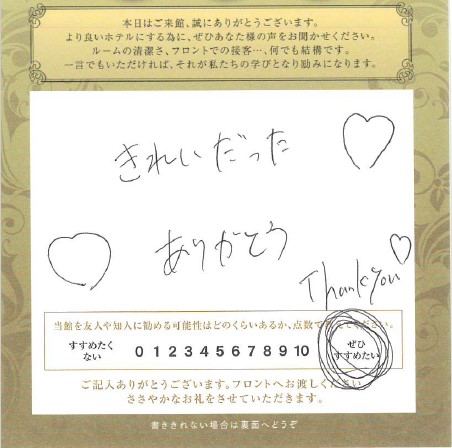 本日はご来館、誠にありがとうございます。
より良いホテルにする為に、ぜひあなた様の声をお聞かせください。
ルームの清潔さ、フロントでの接客…、何でも結構です。
一言でもいただければ、それが私たちの学びとなり励みになります。
きれいだった
ありがとう
Thank you
当館を友人や知人に勧める可能性はどのくらいあるか、点数で教えてください。
すすめたくない 0 1 2 3 4 5 6 7 8 9 10 ぜひすすめたい
ご記入ありがとうございます。フロントへお渡しください
ささやかなお礼をさせていただきます。
書ききれない場合は裏面へどうぞ